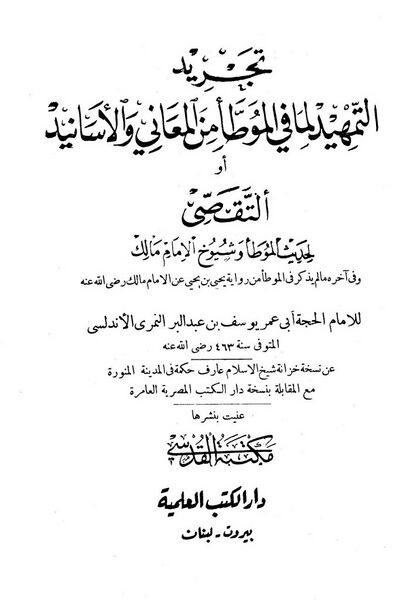 تجريد
التمهيد لما في الموطأ من المعاني والأسانيد
أو
التقصي
لحديث الموطأ وشيوخ الإمام مالك
وفي آخره مالم يذكر في الموطأ من رواية يحيى بن يحيى عن الامام مالك رضى الله عنه
للامام الحجة أبي عمر يوسف بن عبد البر النمرى الأندلسى
المتوفى سنة ٤٦٣ رضى الله عنه
عن نسخة خزانة شيخ الاسلام عارف حكمة في المدينة المنورة
مع المقابلة بنسخة دار الكتب المصرية العامرة
عنيت بنشرها
مكتبة القدسي
دار الكتب العلمية
بيروت - لبنان